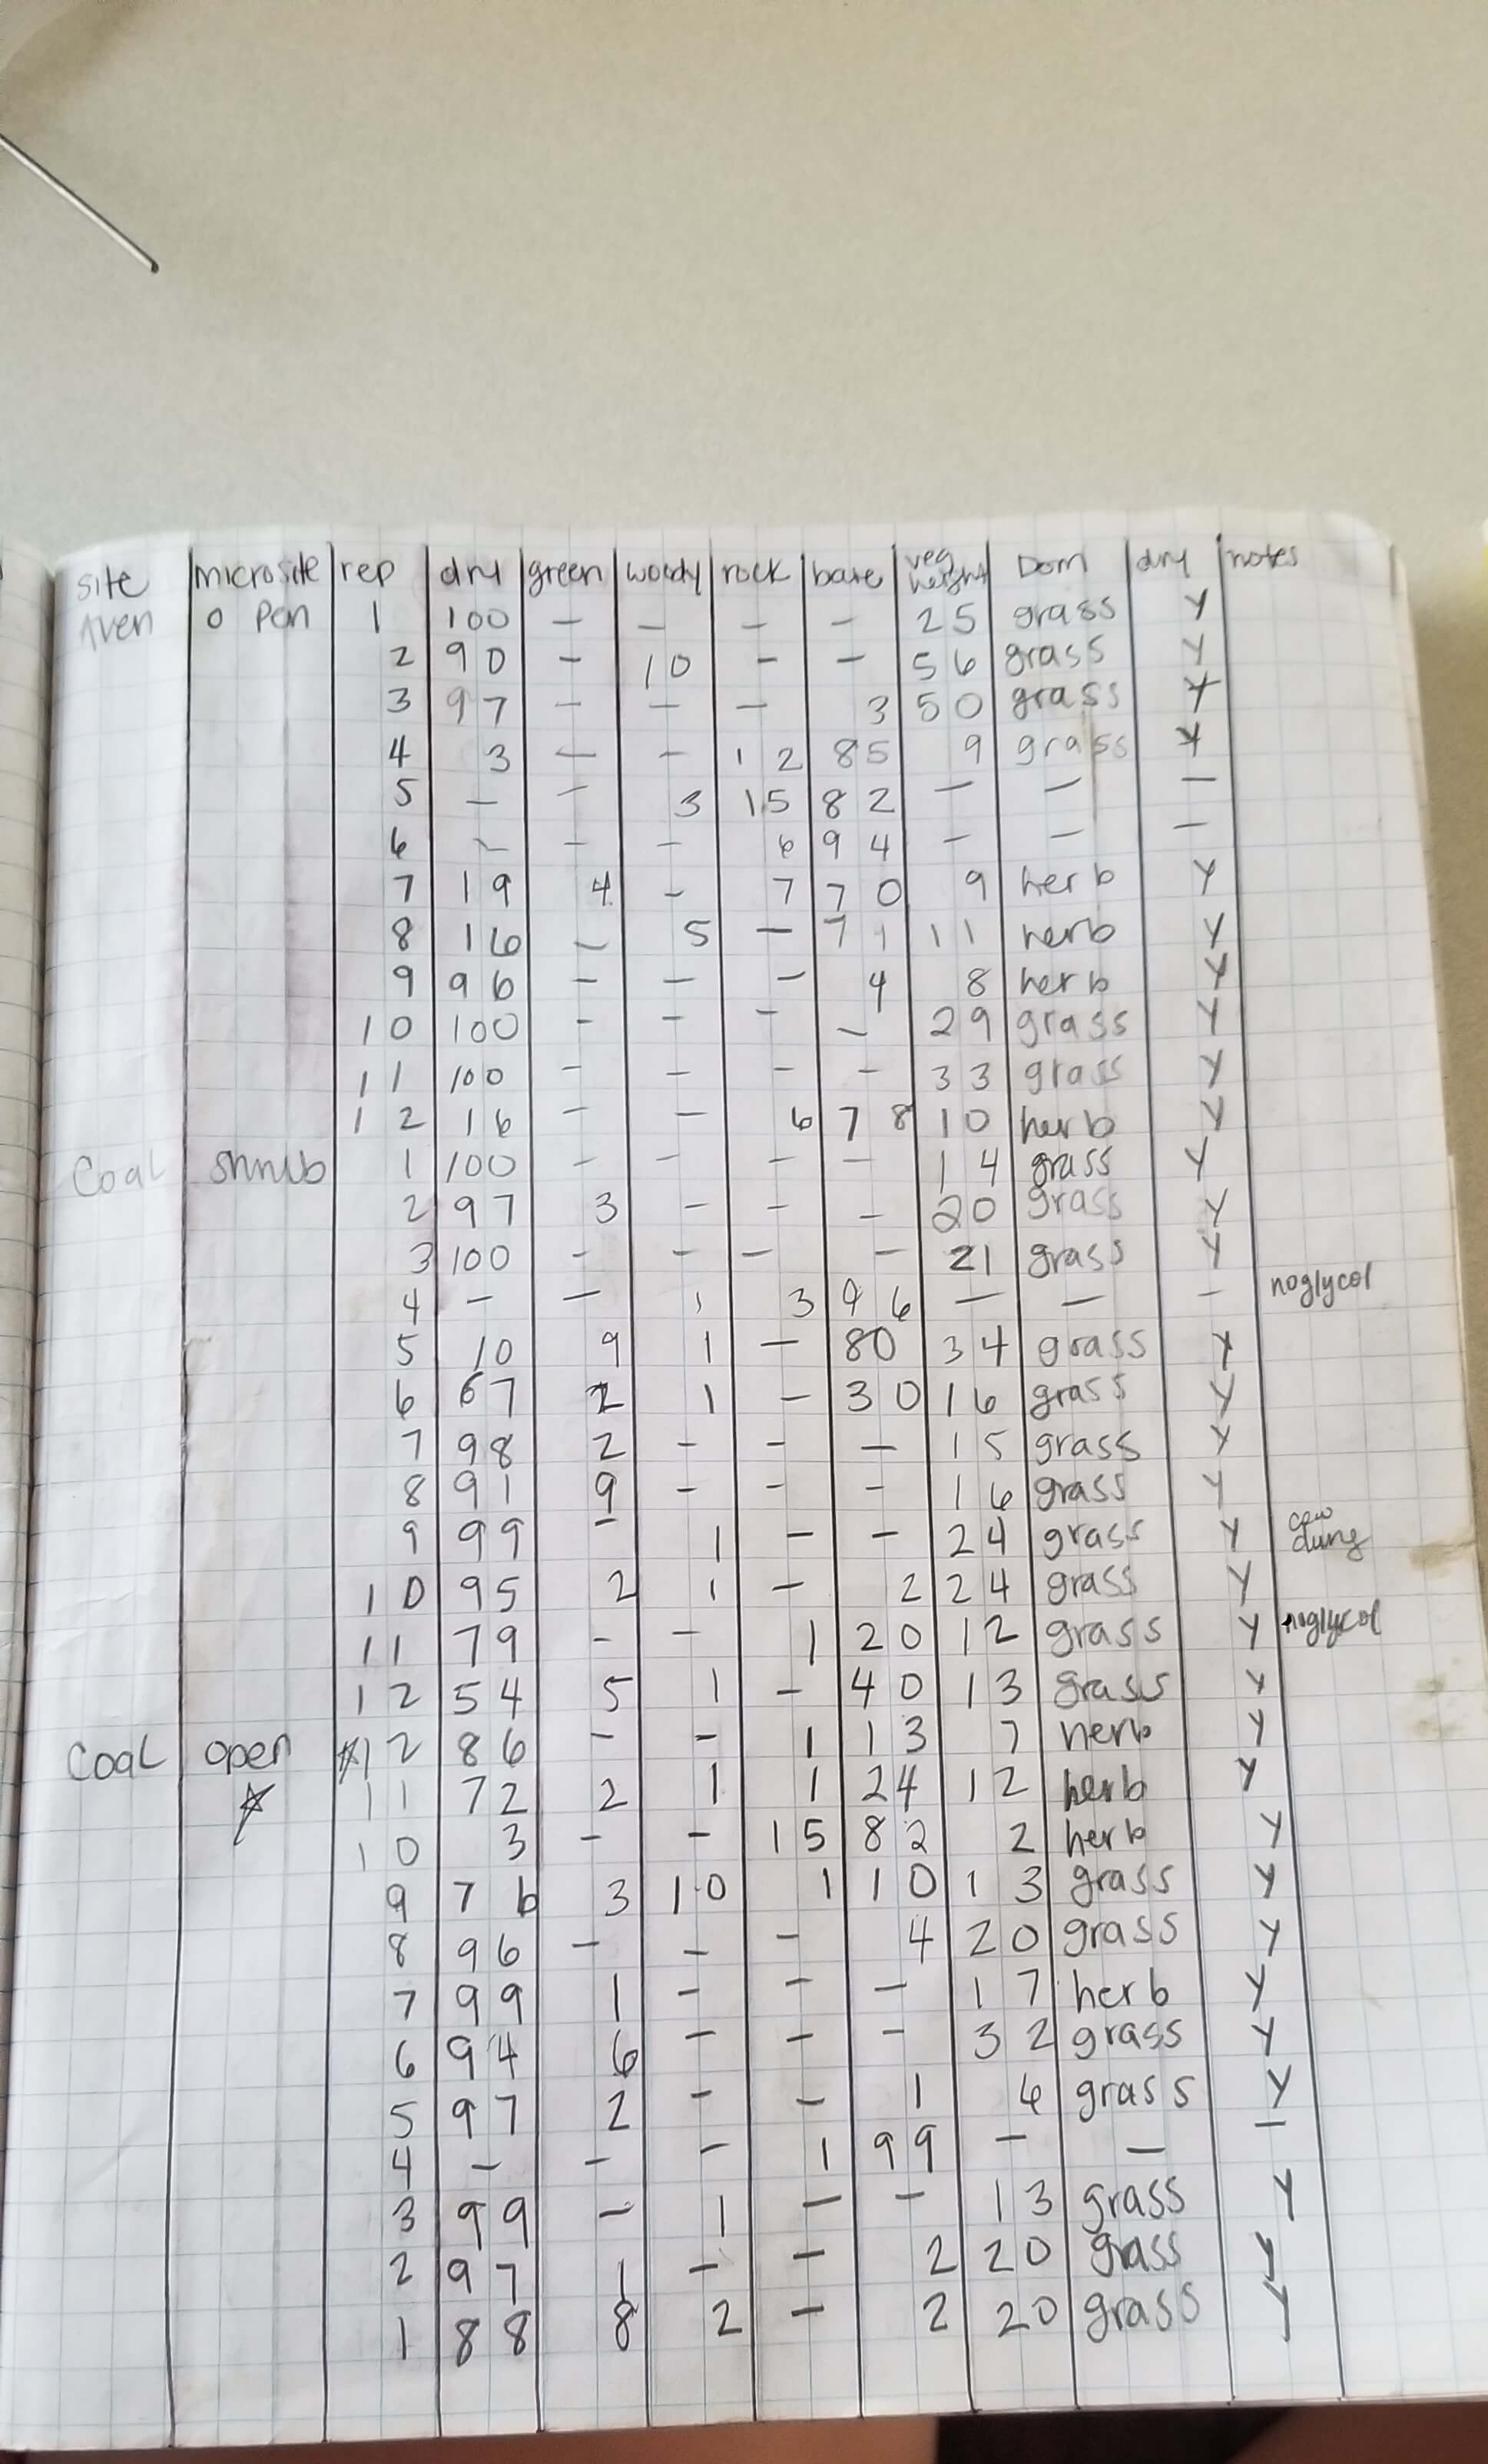 site microsite rep dry green woody rock bare veg height Dom dry notes
Aven open 1 100 — — — — 25 grass y
2 90 — 10 — — 56 grass y
3 97 — — — 3 50 grass y
4 3 — — 12 85 9 grass y
5 — — 3 15 82 — — —
6 — — — 6 94 — — —
7 19 4 — 7 70 9 herb y
8 16 — 5 — 71 11 herb y
9 96 — — — 4 8 herb y
10 100 — — — — 29 grass y
11 100 — — — — 33 grass y
12 16 — — 6 78 10 herb y
Coal shrub 1 100 — — — — 14 grass y
2 97 3 — — — 20 grass y
3 100 — — — — 21 grass y
4 — — 1 3 96 — — — noglycol
5 10 9 1 — 80 34 grass y
6 67 2 1 — 30 16 grass y
7 98 2 — — — 15 grass y
8 91 9 — — — 16 grass y
9 99 — 1 — — 24 grass y cow dung
10 95 2 1 — 2 24 grass y
11 79 — — 1 20 12 grass y noglycol
12 54 5 1 — 40 13 grass y
Coal open ☆12 86 — — 1 13 7 herb y
☆ 11 72 2 1 1 24 12 herb y
10 3 — — 15 82 2 herb y
9 76 3 10 1 10 13 grass y
8 96 — — — 4 20 grass y
7 99 1 — — — 17 herb y
6 94 6 — — — 32 grass y
5 97 2 — — 1 6 grass y
4 — — — 1 99 — — —
3 99 — 1 — — 13 grass y
2 97 1 — — 2 20 grass y
1 88 8 2 — 2 20 grass y